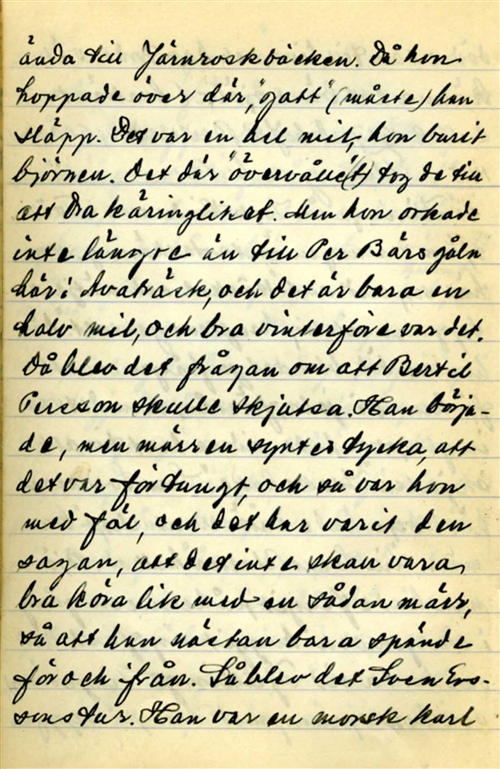 ända till Järnroskbäcken. Då hon
hoppade över där, "gatt" (måste) han
släpp. Det var en hel mil, hon burit
björnen. Det där "övervållé(t) tog de till
att dra käringliket. Men hon orkade
inte längre än till Per Bärs gåln
här i Avaträsk, och det är bara en
halv mil, och bra vinterföre var det.
Då blev det frågan om att Bertil
Persson skulle skjutsa. Han börja-
de, men märren syntes tycka, att
det var för tungt, och så var hon
med föl, och det har varit den
sagan, att det inte skall vara
bra köra lik med en sådan märr,
så att han nästan bara spände
för och ifrån. Så blev det Sven Ers-
sons tur. Han var en morsk karl